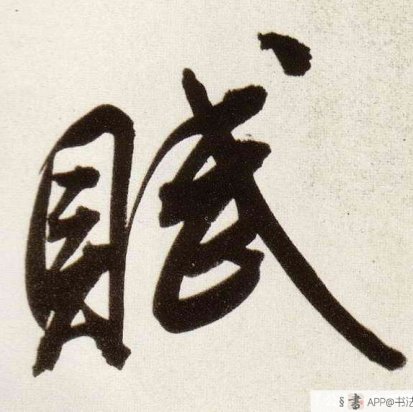 賦
§ 書 APP@书法